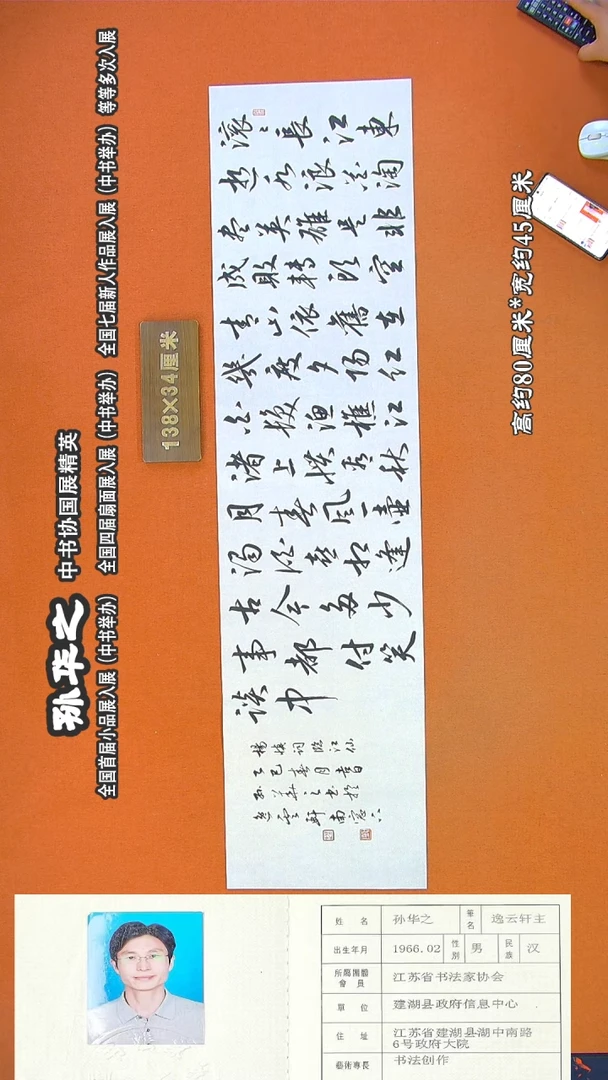 滚〻長江東
逝水浪花淘
尽英雄是非
成敗轉頭空
青山依舊在
幾度夕阳红
白髮漁樵江
渚上惯看秋
月春風一壶
濁酒喜相逢
古今多少
事都付笑
談中
楊慎詞臨江仙
乙巳春月吉日
孙華之書於
逸雲軒南窗
138×34厘米
孙华之 中书协国展精英
全国首届小品展入展（中书举办） 全国四届扇面展入展（中书举办） 全国七届新人作品展入展（中书举办） 等等多次入展
高约80厘米*宽约45厘米
姓名 孙华之 筆名 逸云轩主
出生年月 1966.02 性別 男 民族 汉
所屬團體會員 江苏省书法家协会
單位 建湖县政府信息中心
住址 江苏省建湖县湖中南路
6号政府大院
藝術專長 书法创作